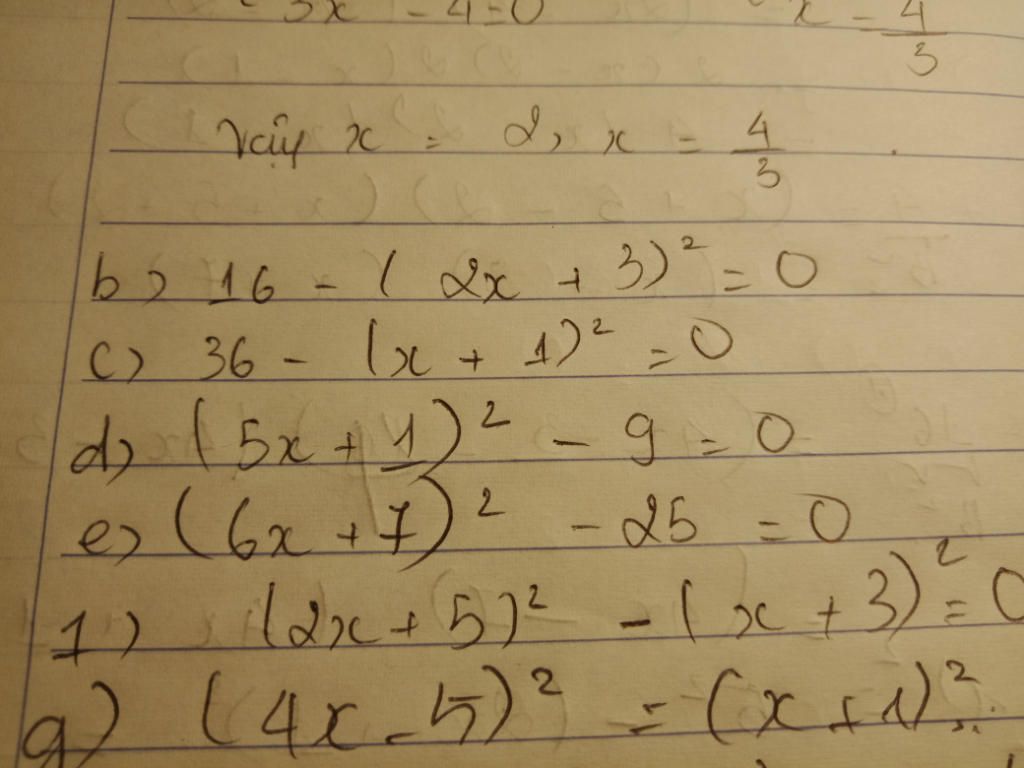 3x - 4 = 0 x = 4/3
Vậy x = 2, x = 4/3.
b) 16 - (2x + 3)² = 0
c) 36 - (x + 1)² = 0
d) (5x + 1)² - 9 = 0
e) (6x + 7)² - 25 = 0
1) (2x + 5)² - (x + 3)² = 0
g) (4x - 5)² = (x + 1)²